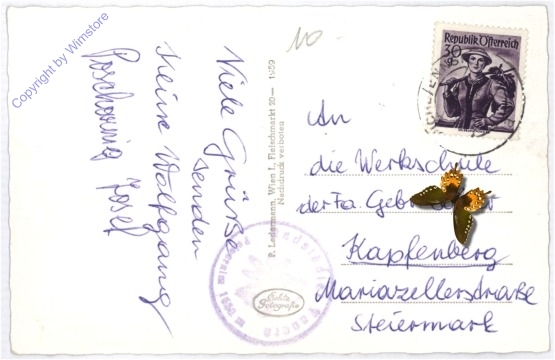 Copyright by Wimstore
10.-
Viele Grüße
senden
Heinz Wolfgang
Poschornig Josef
P. Ledermann, Wien I., Fleischmarkt 20— 1959
Nachdruck verboten
Echte
Fotografie
Republik Österreich
30
An
die Werkschule
der Fa. Geb
Kapfenberg
Mariazellerstraße
Steiermark